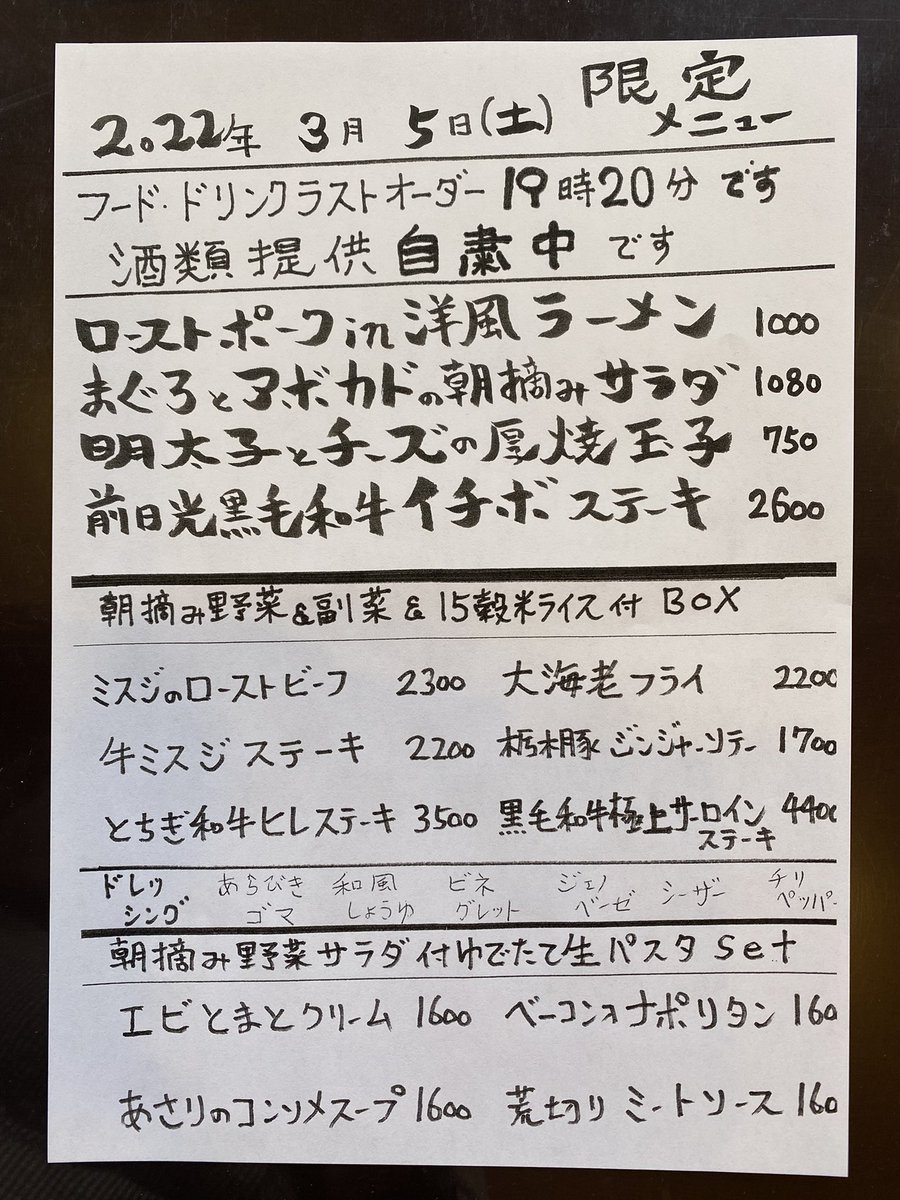 2022年 3月 5日(土) 限定
メニュー
フード・ドリンクラストオーダー 19時20分 です
酒類提供 自粛中 です
ローストポークin洋風ラーメン 1000
まぐろとアボカドの朝摘みサラダ 1080
明太子とチーズの厚焼玉子 750
前日光黒毛和牛イチボステーキ 2600
朝摘み野菜&副菜&15穀米ライス付 BOX
ミスジのローストビーフ 2300 大海老フライ 2200
牛ミスジステーキ 2200 栃木豚ジンジャーソテー 1700
とちぎ和牛ヒレステーキ 3500 黒毛和牛極上サーロイン 4400
ステーキ
ドレッ あらびき 和風 ビネ ジェノ シーザー チリ
シング ゴマ しょうゆ グレット ベーゼ ペッパー
朝摘み野菜サラダ付ゆでたて生パスタ Set
エビとまとクリーム 1600 ベーコンオナポリタン 160
あさりのコンソメスープ 1600 荒切りミートソース 160